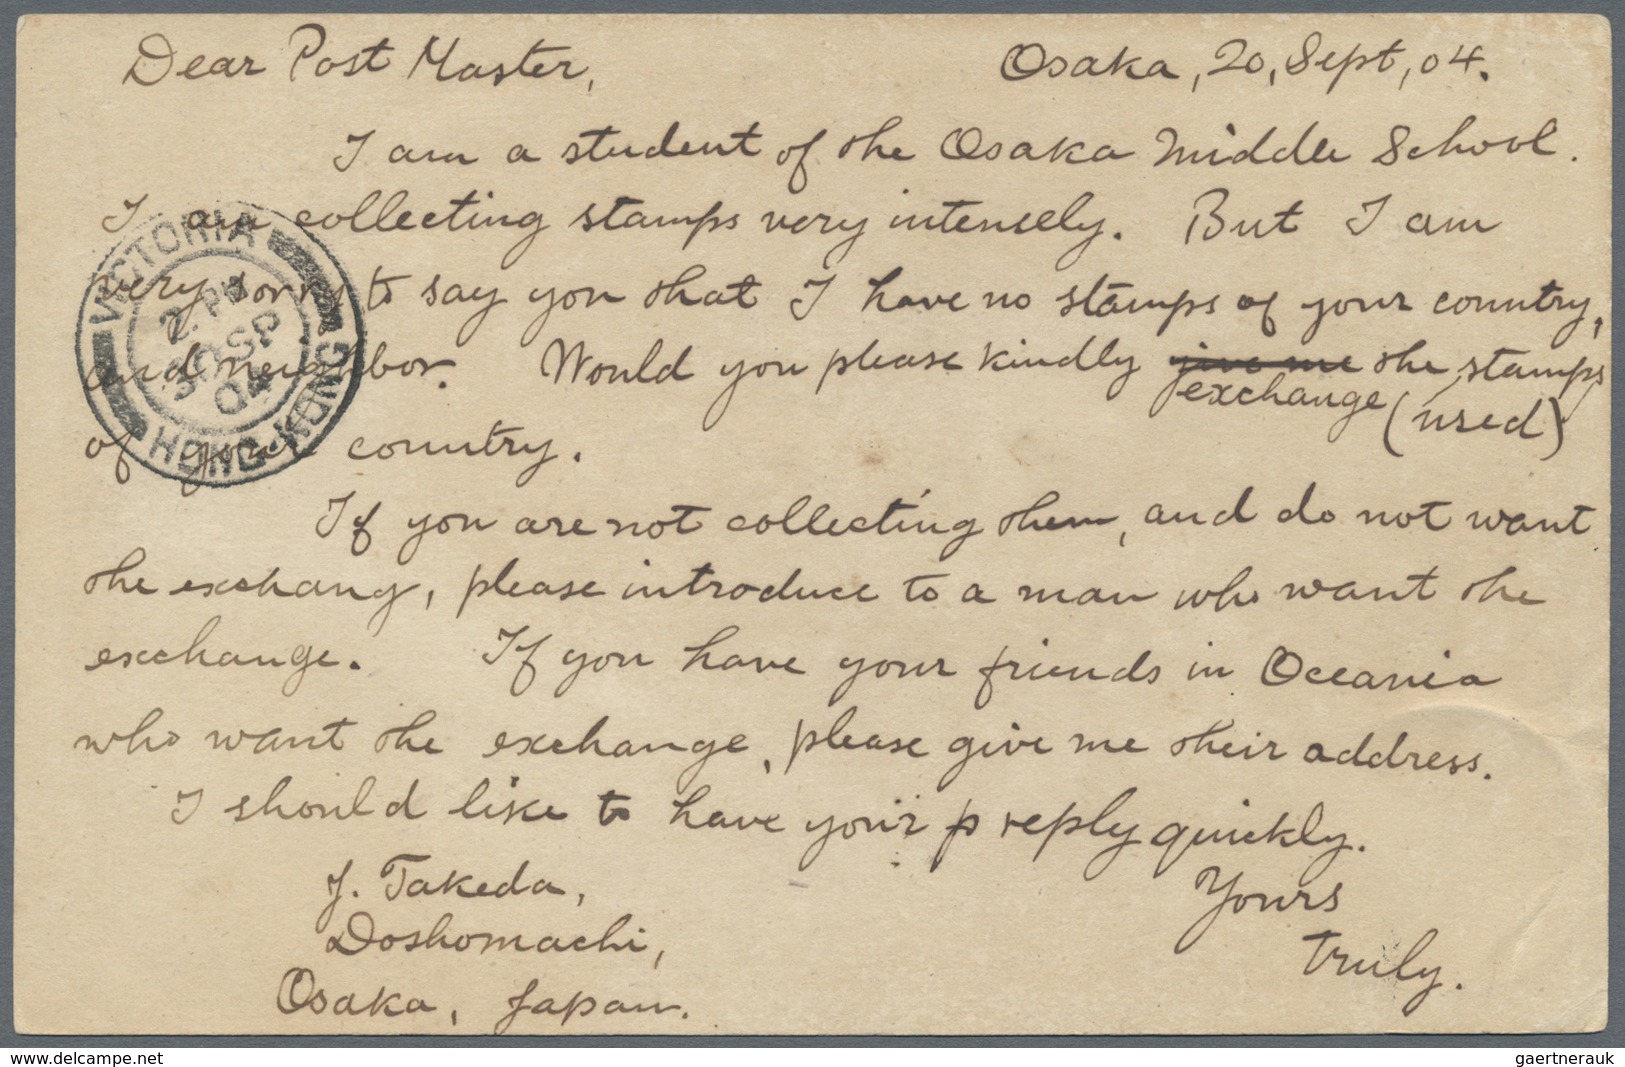 Dear Post Master,
Osaka, 20, Sept, 04.
I am a student of the Osaka Middle School.
I am collecting stamps very intensely. But I am
very sorry to say you that I have no stamps of your country,
and neighbor. Would you please kindly give me the stamps
exchange (used)
of your country.
If you are not collecting them, and do not want
the exchang, please introduce to a man who want the
exchange. If you have your friends in Oceania
who want the exchange, please give me their address.
I should like to have your p reply quickly.
J. Takeda,
Doshomachi,
Osaka, Japan.
Yours
truly.
VICTORIA
2. PM
30 SP
04
HONG-KONG
www.delcampe.net
gaertnerauk